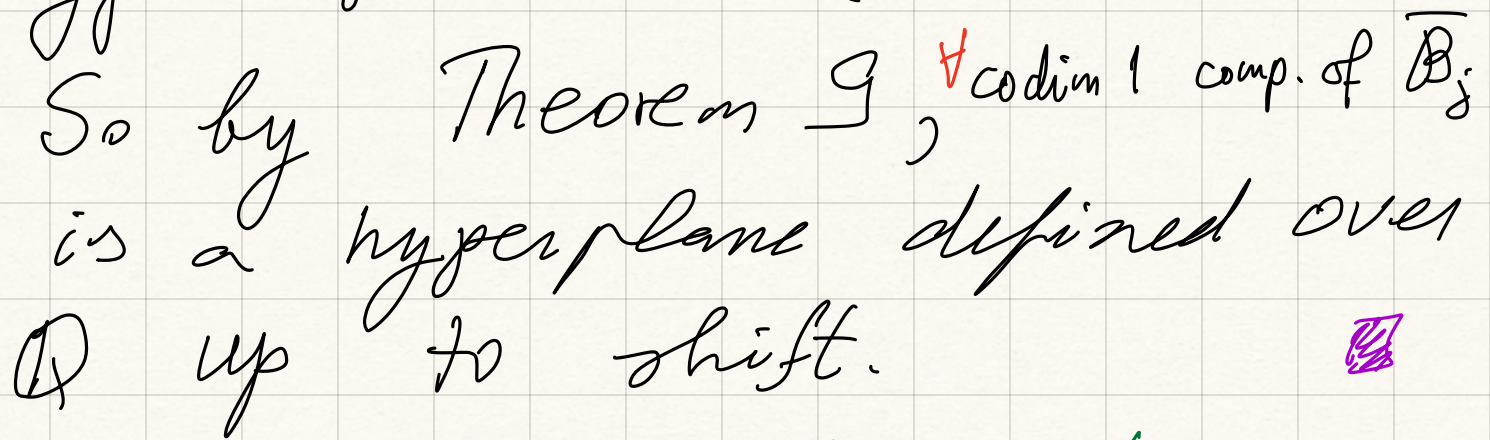 So by Theorem 9, ∀ codim 1 comp. of B̅ⱼ
is a hyperplane defined over
ℚ up to shift.